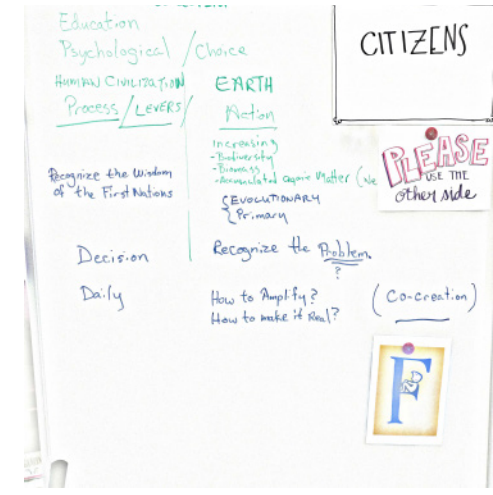 Education
Psychological / Choice
HUMAN CIVILIZATION
Process / LEVERS /
EARTH
Action
Increasing
- Biodiversity
- Biomass
- Accumulated Organic Matter
{ EVOLUTIONARY
{ Primary
Recognize the Wisdom
of the First Nations
Decision
Recognize the Problem.
?
Daily
How to Amplify?
How to make it Real?
(Co-creation)
CITIZENS
PLEASE
USE THE
other side
F